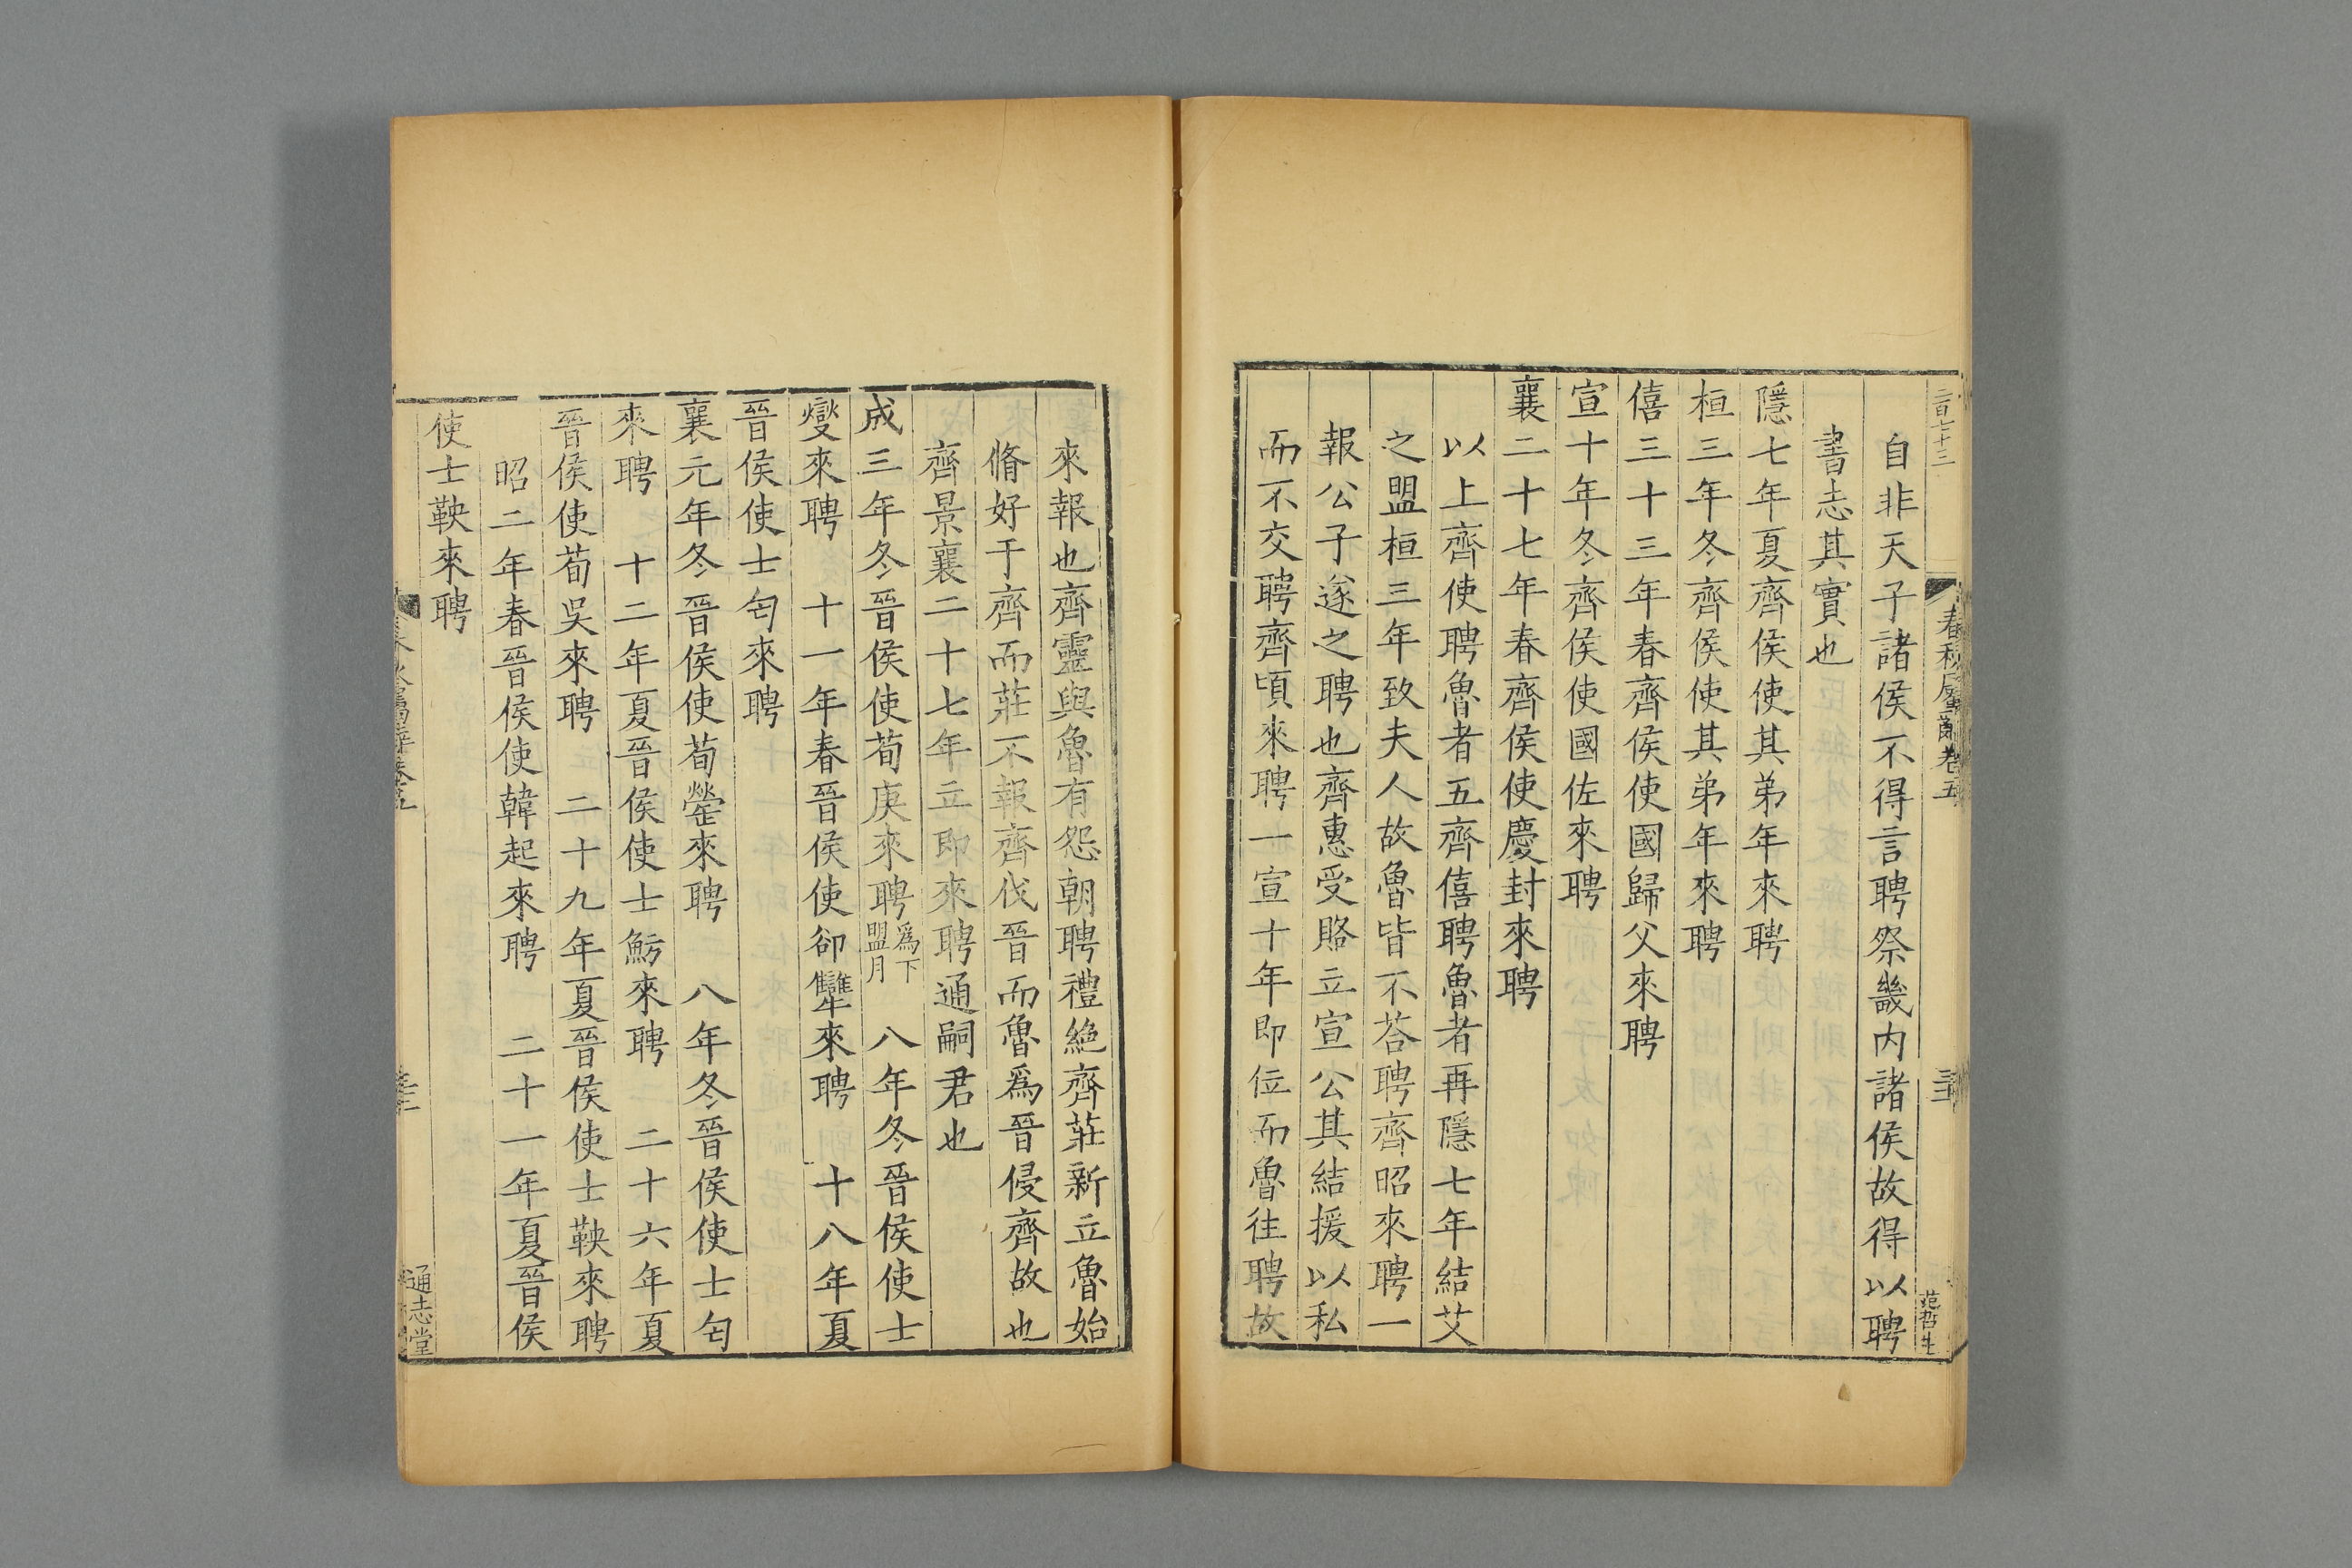 二百七十三
春秋屬辭卷五
三十
范哲生
自非天子諸侯不得言聘祭畿内諸侯故得以聘
書志其實也
隱七年夏齊侯使其弟年來聘
桓三年冬齊侯使其弟年來聘
僖三十三年春齊侯使國歸父來聘
宣十年冬齊侯使國佐來聘
襄二十七年春齊侯使慶封來聘
以上齊使聘魯者五齊僖聘魯者再隱七年結艾
之盟桓三年致夫人故魯皆不荅聘齊昭來聘一
報公子遂之聘也齊惠受賂立宣公其結援以私
而不交聘齊頃來聘一宣十年即位而魯往聘故
來報也齊靈與魯有怨朝聘禮絶齊莊新立魯始
脩好于齊而莊不報齊伐晉而魯爲晉侵齊故也
齊景襄二十七年立即來聘通嗣君也
成三年冬晉侯使荀庚來聘爲下盟月　八年冬晉侯使士
燮來聘　十一年春晉侯使郤犨來聘　十八年夏
晉侯使士匄來聘
襄元年冬晉侯使荀罃來聘　八年冬晉侯使士匄
來聘　十二年夏晉侯使士魴來聘　二十六年夏
晉侯使荀吳來聘　二十九年夏晉侯使士鞅來聘
昭二年春晉侯使韓起來聘　二十一年夏晉侯
使士鞅來聘
春秋屬辭卷五
通志堂